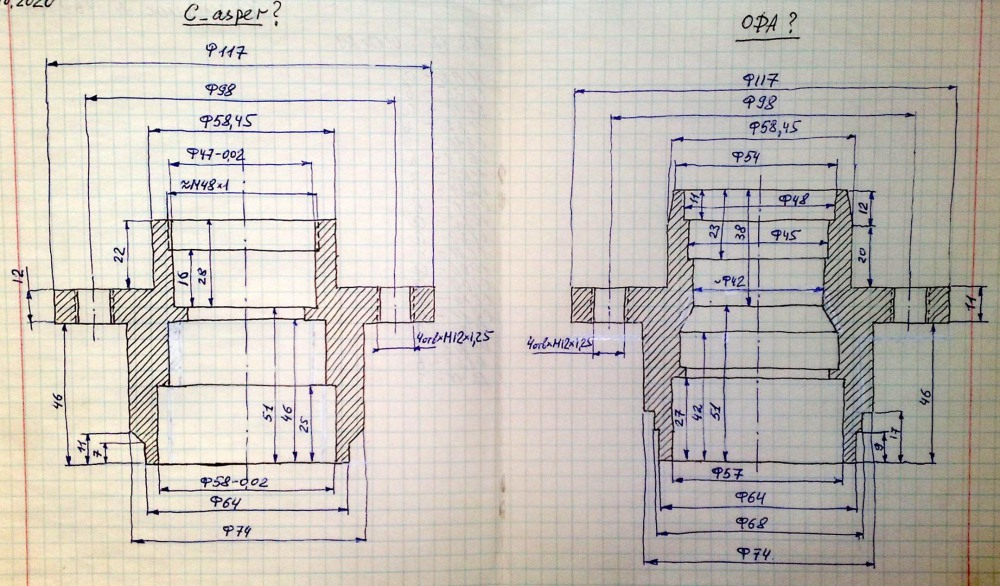 C_asper?
Ф117
Ф98
Ф58,45
Ф47-0.02
≈М48х1
22
12
16
28
4отвхМ12х1,25
46
11
7
51
46
25
Ф58-0.02
Ф64
Ф74
ОФА?
Ф117
Ф98
Ф58,45
Ф54
11
Ф48
12
23
38
Ф45
20
~Ф42
11
4отвхМ12х1,25
27
42
51
46
9
17
Ф57
Ф64
Ф68
Ф74